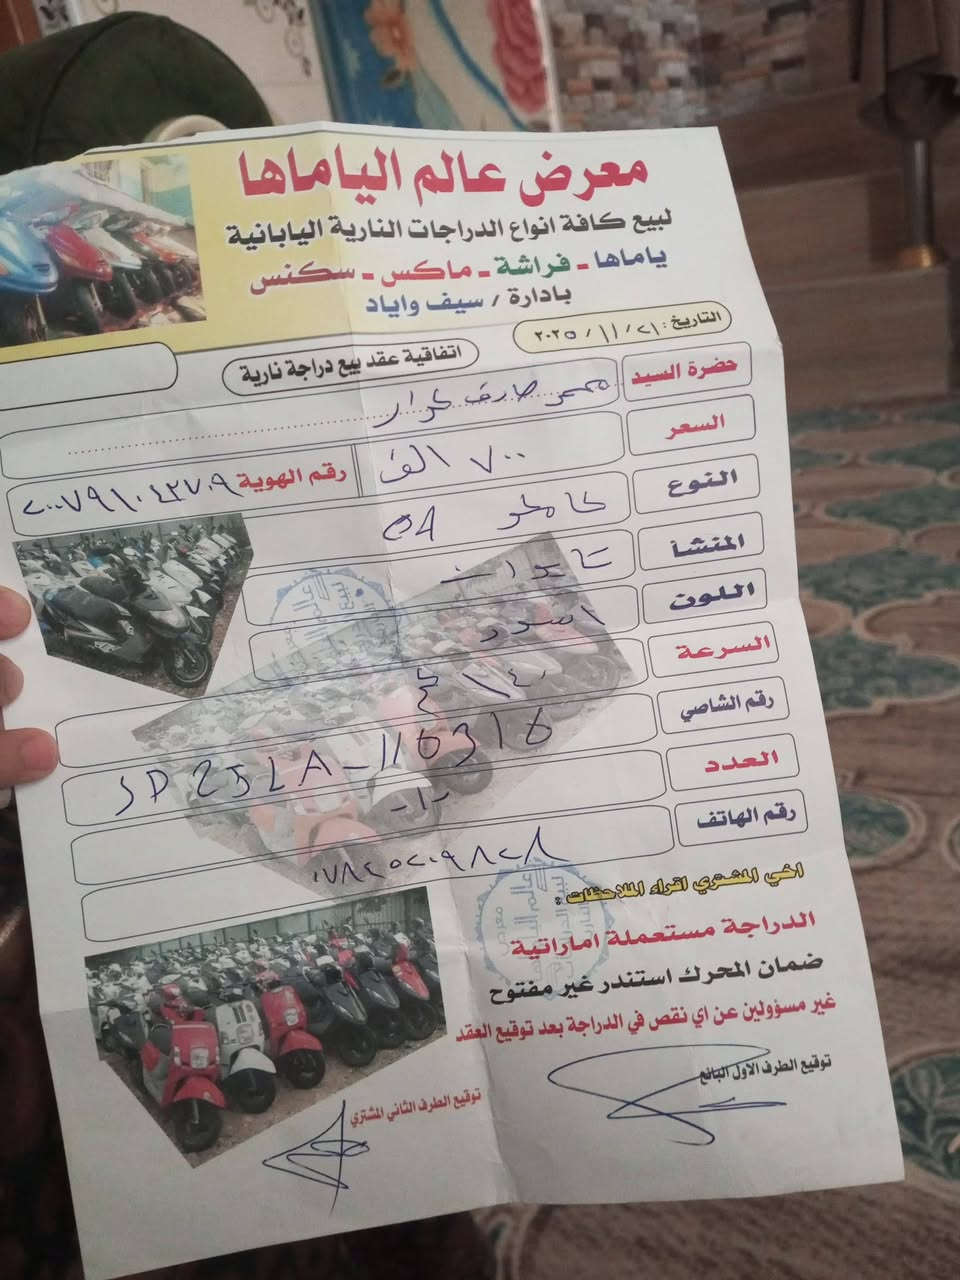 معرض عالم الياماها
لبيع كافة انواع الدراجات النارية اليابانية
ياماها - فراشة - ماكس - سكنس
بادارة / سيف واياد
التاريخ: ٢١ / ١١ / ٢٠٢٥
اتفاقية عقد بيع دراجة نارية
حضرة السيد محمد طارق كرار
السعر ٧٠٠ الف رقم الهوية ٢٠٠٧٩١٠٤٣٧٠٩
النوع
المنشأ تايوان
اللون اسود
السرعة ١٤٠
رقم الشاصي
العدد -١-
رقم الهاتف ٠٧٨٢٥٢٠٩٨٢٨
اخي المشتري اقراء الملاحظات:
الدراجة مستعملة اماراتية
ضمان المحرك استندر غير مفتوح
غير مسؤولين عن اي نقص في الدراجة بعد توقيع العقد
توقيع الطرف الاول البائع
توقيع الطرف الثاني المشتري